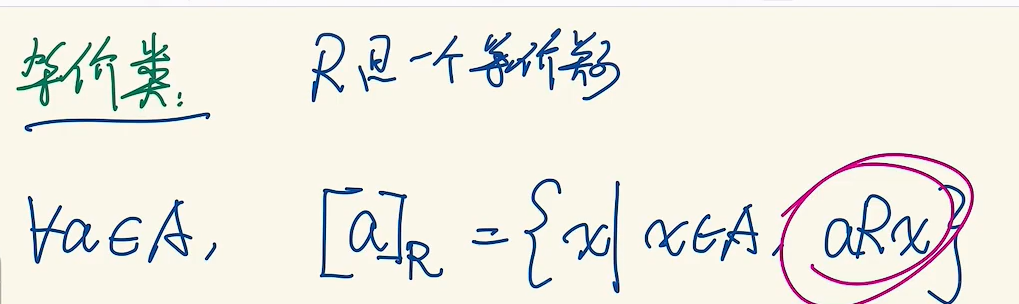 等价类: R是一个等价关系
∀a∈A, [a]_R = {x| x∈A, aRx}